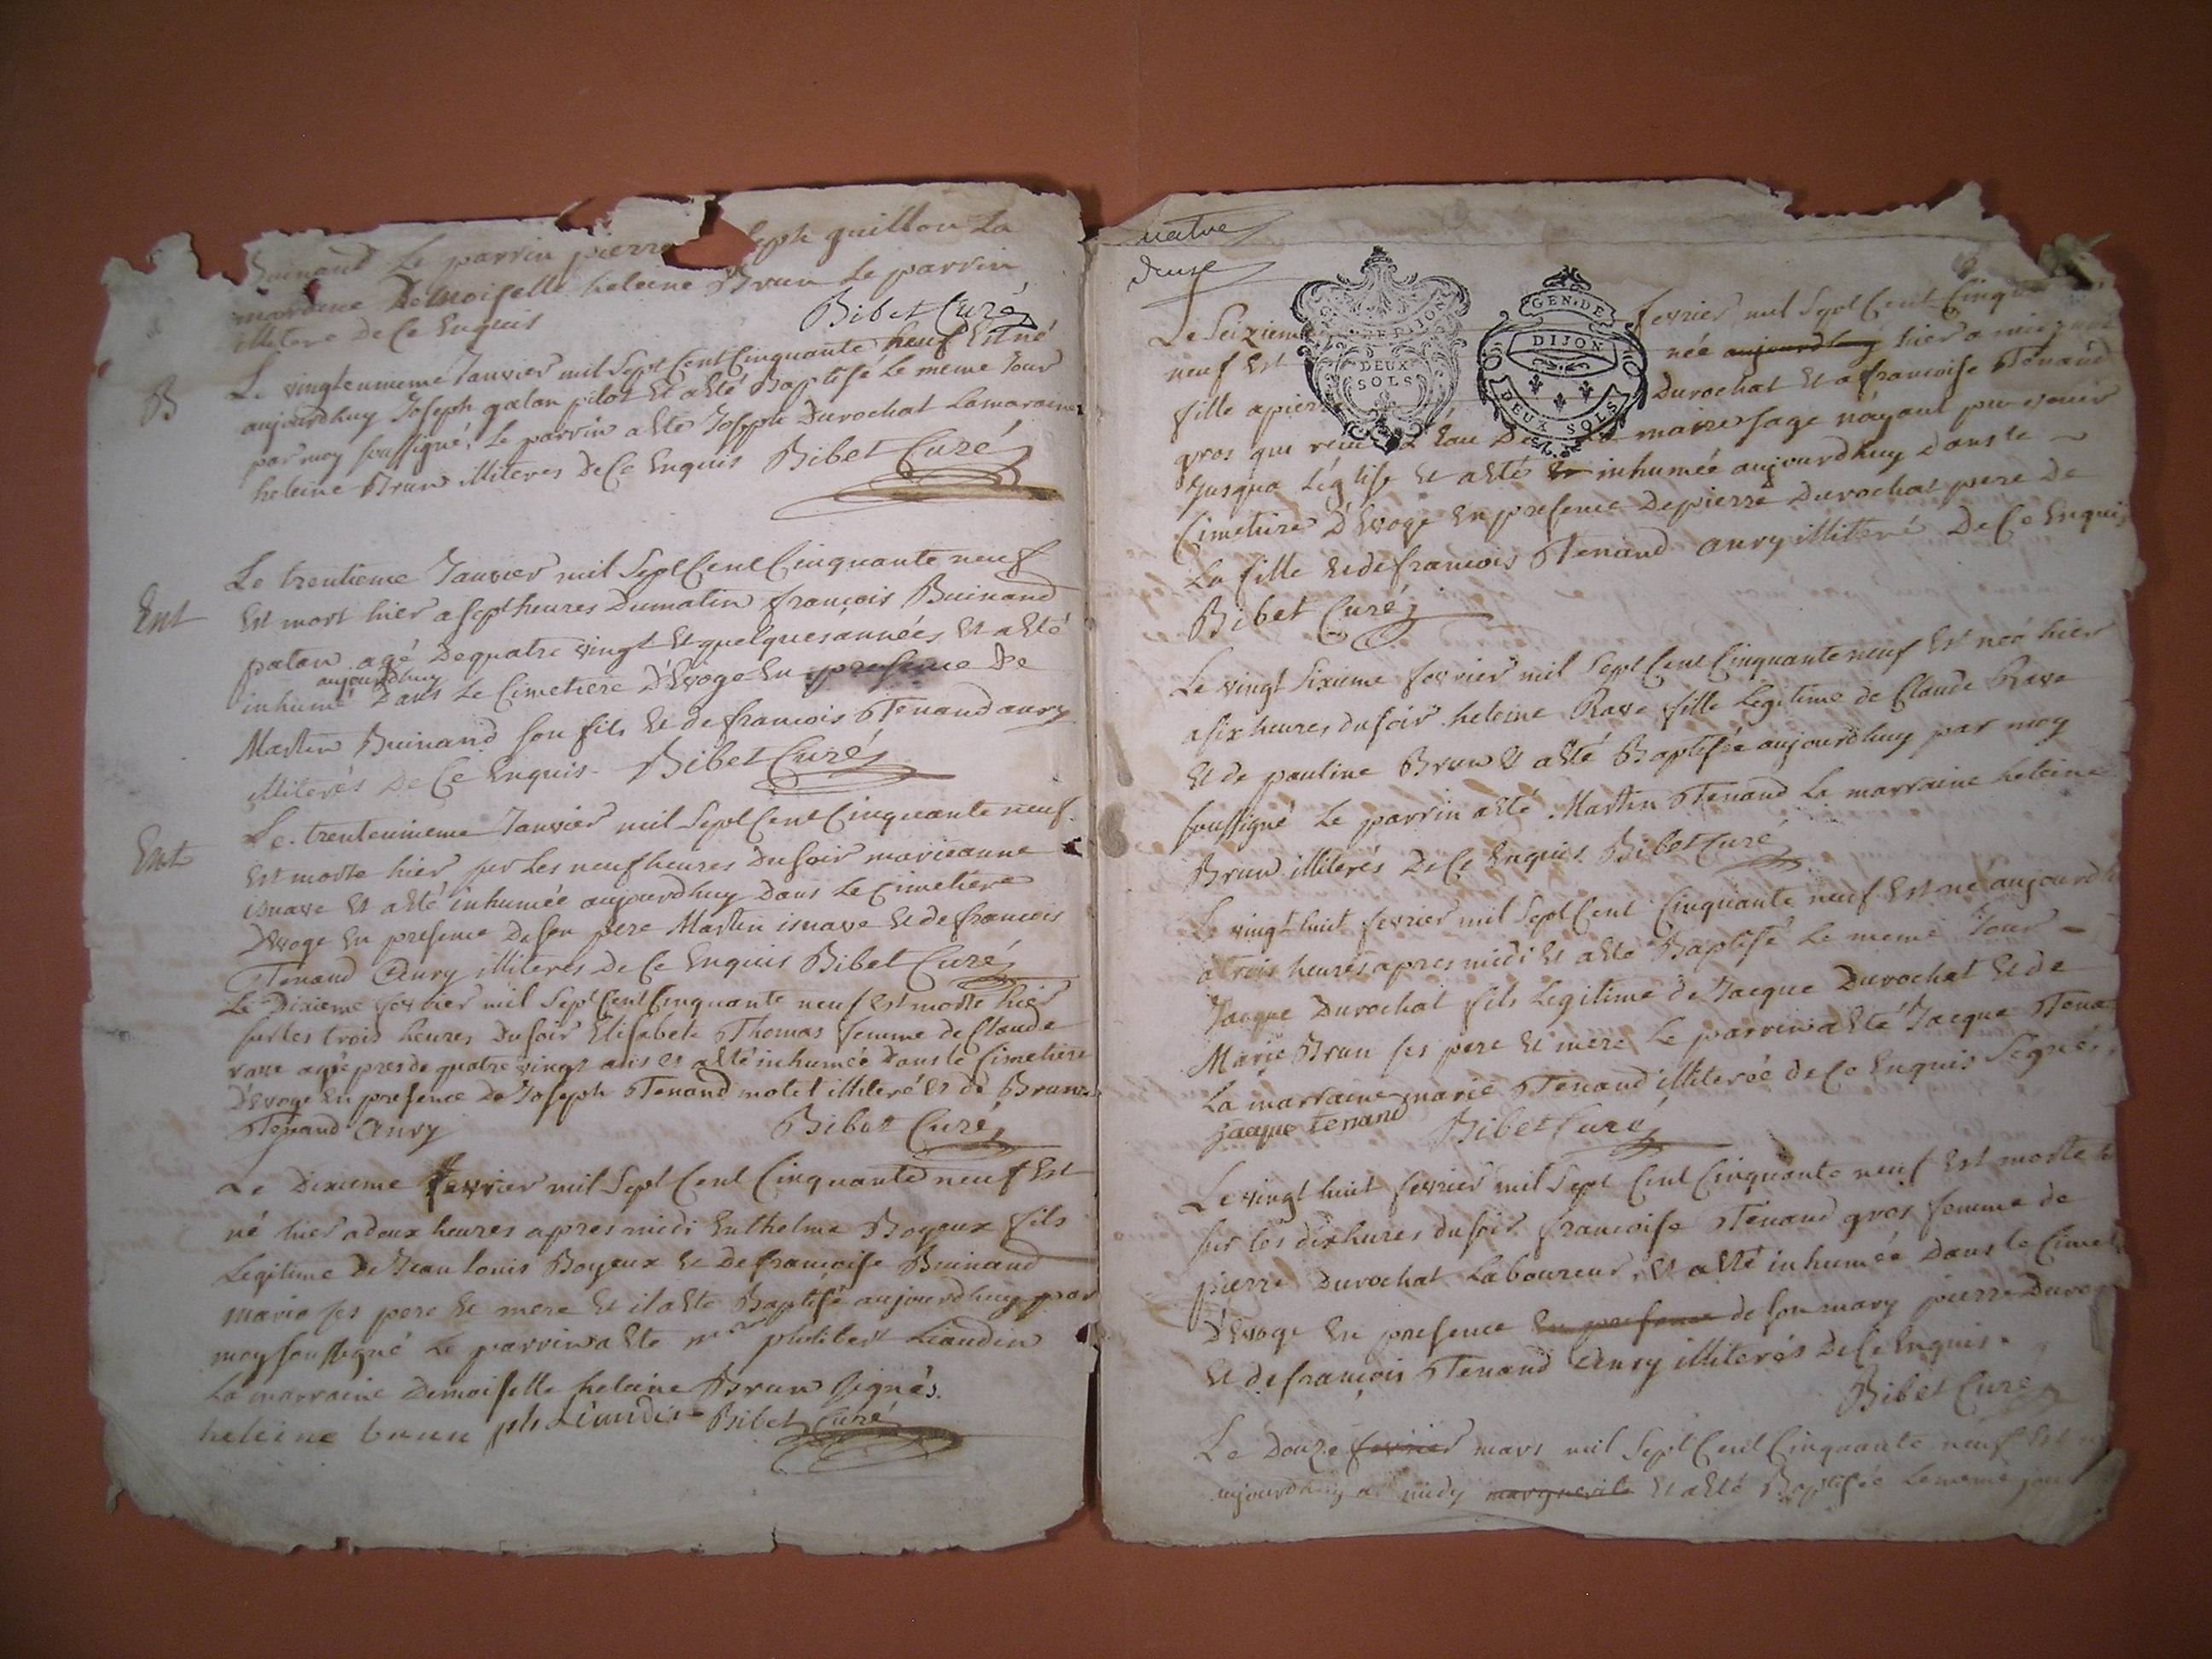 Buinand Le parrin pierre seph guillon La
mardine Demoiselle heleine Brun Le parrin
illitere de Ce Enquis Bibet Curé
B
Le vingtunieme Janvier mil Sept Cent Cinquante neuf Est né
aujourdhuy Joseph galan pilot Et a Eté Baptisé Le meme Jour
par moy soussigné. Le parrin a Eté Joseph Durochat La maraine
heleine Brun illiteres de Ce Enquis Bibet Curé
Ent
Le trentieme Janvier mil Sept Cent Cinquante neuf
Est mort hier a sept heures Du matin françois Buinand
patan agé De quatre vingt Et quelques années Et a Eté
aujourdhuy
inhumé Dans Le Cimetiere D'Evoge En presence De
Martin Buinand son fils Et de francois Tenand anry
illiterés De Ce Enquis. Bibet Curé
Ent
Le trentunieme Janvier mil Sept Cent Cinquante neuf
Est morte hier sur Les neuf heures Du soir marieanne
isnave Et a Eté inhumée aujourdhuy Dans Le Cimetiere
D'Evoge En presence De son pere Martin isnave Et de francois
Tenand Anry illiterés De Ce Enquis Bibet Curé
Le Dixieme fevrier mil Sept Cent Cinquante neuf Est morte hier
sur Les trois heures Du soir Elisabete Thomas femme de Claude
rave agée pres de quatre vingt ans Et a Eté inhumée Dans le Cimetiere
D'Evoge En presence De Joseph Tenand motet illiteré Et de Brun
Tenand Anry Bibet Curé
Le Dixieme fevrier mil Sept Cent Cinquante neuf Est
né hier a deux heures apres midi Enthelme Boyeux fils
Legitime De Jean Louis Boyeux Et De françoise Buinand
Mario ses pere Et mere Et il a Eté Baptisé aujourdhuy par
moy soussigné Le parrin a Eté mr philibert Liandin
La marraine Demoiselle heleine Brun signés.
heleine brun ph Liandin Bibet Curé
quatre
deuse
Le Seizieme fevrier mil Sept Cent Cinq
neuf Est née aujourdhuy hier a
fille a pierre Durochat Et a francoise Tenand
gros qui L'eau De La maire sage n'ayant pu venir
Jusqua L'église Et a Eté inhumée aujourdhuy dans le
Cimetiere D'Evoge En presence De pierre Durochat pere De
La fille Et de francois Tenand anry illiteré De Ce Enquis
Bibet Curé
GEN. DE DIJON
DEUX
SOLS
GEN. DE
DIJON
DEUX SOLS
Le vingt Sixieme fevrier mil Sept Cent Cinquante neuf Est née hier
a six heures du soir heleine Rave fille Legitime de Claude Rave
Et de pauline Brun Et a Eté Baptisée aujourdhuy par moy
soussigné Le parrin a Eté Martin Tenand La marraine heleine
Brun illiterés De Ce Enquis Bibet Curé
Le vingt huit fevrier mil Sept Cent Cinquante neuf Est né aujourdh
a trois heures apres midi Et a Eté Baptisé Le meme Jour
Jacque Durochat fils Legitime de Jacque Durochat Et de
Marie Brun ses pere Et mere Le parrin a Eté Jacque Tena
La marraine marie Tenand illiterée de Ce Enquis Segnés
Jacque Tenand Bibet Curé
Le vingt huit fevrier mil Sept Cent Cinquante neuf Est morte
sur Les dix hures du soir francoise Tenand gros femme de
pierre Durochat Laboureur, Et a Eté inhumée Dans le Cimet
D'Evoge En presence En presence de son mary pierre Duro
Et de françois Tenand Anry illiterés De Ce Enquis.
Bibet Curé
Le Douze fevrier mars mil Sept Cent Cinquante neuf Est
aujourdhuy a midy marguerite Et a Eté Baptisée Le meme jou